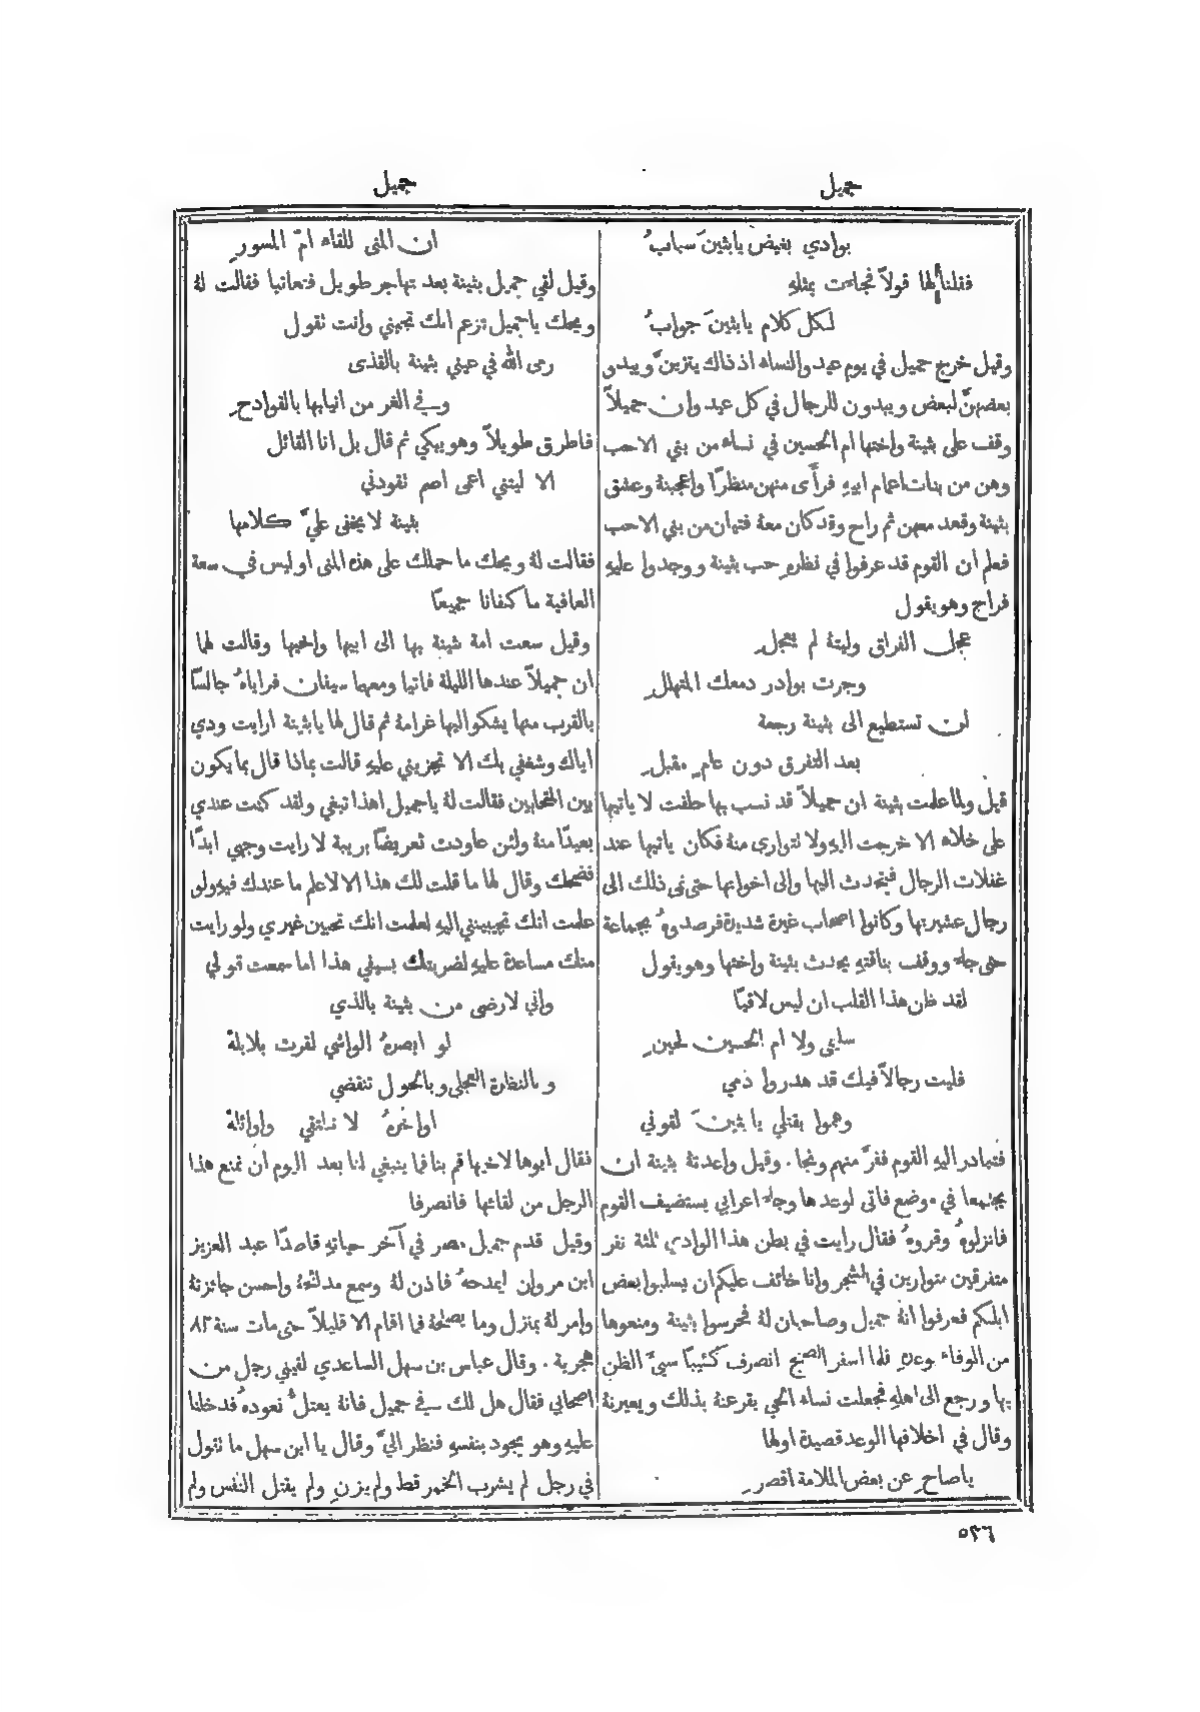 جميل
جميل
بوادي بغيض يا بثينَ سبابُ
فقلنا لها قولاً فجاءت بمثلهِ
لكل كلام يا بثينَ جوابُ
وقيل خرج جميل في يوم عيد والنساء اذ ذاك يتزينَّ ويبدو
بعضهنَّ لبعض ويبدون للرجال في كل عيد وان جميلاً
وقف على بثينة واختها ام الحسين في نساء من بني الاحب
وهن من بنات اعمام ابيهِ فرأَى منهن منظرًا واعجبنهُ وعشق
بثينة وقعد معهن ثم راح وقد كان معهُ فتيان من بني الاحب
فعلم ان القوم قد عرفوا في نظرهِ حب بثينة ووجدوا عليهِ
فراح وهو يقول
عجل الفراق وليتهُ لم يعجلِ
وجرت بوادر دمعك المتهللِ
لن تستطيع الى بثينة رجعة
بعد التفرق دون عامٍ مقبلِ
قيل ولما علمت بثينة ان جميلاً قد نسب بها حلفت لا ياتيها
على خلاء الا خرجت اليهِ ولا تتوارى منهُ فكان ياتيها عند
غفلات الرجال فيتحدث اليها والى اخواتها حتى نمى ذلك الى
رجال عشيرتها وكانوا اصحاب غيرة شديدة فرصدوهُ بجماعة
حتى جاء ووقف بناقتهِ يحدث بثينة واختها وهو يقول
لقد ظن هذا القلب ان ليس لاقيًا
سليمى ولا ام الحسين لحينِ
فليت رجالاً فيك قد هدروا دمي
وهموا بقتلي يا بثينَ لقوني
فتبادر اليهِ القوم ففرَّ منهم ونجا. وقيل واعدتهُ بثينة ان
يجتمعا في موضع فاتى لوعدها وجاء اعرابي يستضيف القوم
فانزلوهُ وقروهُ فقال رايت في بطن هذا الوادي ثلثة نفر
متفرقين متوارين في الشجر وانا خائف عليكم ان يسلبوا بعض
ابلكم فعرفوا انهُ جميل وصاحبان لهُ فحرسوا بثينة ومنعوها
من الوفاء بوعدهِ فلما اسفر الصبح انصرف كئيبًا سيئَ الظن
بها ورجع الى اهلهِ فجعلت نساء الحي يقرعنهُ بذلك ويعيرنهُ
وقال في اخلافها الوعد قصيدة اولها
يا صاحِ عن بعض الملامة اقصرِ
ان المنى للقاء امّ المسورِ
وقيل لقي جميل بثينة بعد تهاجر طويل فتعاتبا فقالت لهُ
ويحك يا جميل تزعم انك تحبني وانت تقول
رمى الله في عيني بثينة بالقذى
وفي الغر من انيابها بالقوادحِ
فاطرق طويلاً وهو يبكي ثم قال بل انا القائل
الا ليتني اعمى اصم تقودني
بثينة لا يخفى عليَّ كلامها
فقالت لهُ ويحك ما حملك على هذه المنى او ليس في سعة
العافية ما كفانا جميعًا
وقيل سعت امة بثينة بها الى ابيها واخيها وقالت لهما
ان جميلاً عندها الليلة فاتيا ومعهما سيفان فراياهُ جالسًا
بالقرب منها يشكو اليها غرامهُ ثم قال لها يا بثينة ارايت ودي
اياك وشغفي بك الا تجزيني عليهِ قالت بماذا قال بما يكون
بين المتحابين فقالت لهُ يا جميل اهذا تبغي ولقد كنت عندي
بعيدًا منهُ ولئن عاودت تعريضًا بريبة لا رايت وجهي ابدًا
فضحك وقال لها ما قلت لك هذا الا لاعلم ما عندك فيهِ ولو
علمت انك تجيبينني اليهِ لعلمت انك تجيبين غيري ولو رايت
منك مساعدة عليهِ لضربتك بسيفي هذا اما سمعت قولي
واني لارضى من بثينة بالذي
لو ابصرهُ الواشي لقرت بلابلهُ
وبالنظرة العجلى وبالحول تنقضي
اواخرهُ لا نلتقي واوائلهُ
فقال ابوها لاخيها قم بنا فما ينبغي لنا بعد اليوم ان نمنع هذا
الرجل من لقائها فانصرفا
وقيل قدم جميل مصر في آخر حياتهِ قاصدًا عبد العزيز
ابن مروان ليمدحهُ فاذن لهُ وسمع مدائحهُ واحسن جائزتهُ
وامر لهُ بمنزل وما يصلحهُ فما اقام الا قليلاً حتى مات سنة ٨٢
هجرية. وقال عباس بن سهل الساعدي لقيني رجل من
اصحابي فقال هل لك في جميل فانهُ يعتلُّ نعودهُ فدخلنا
عليهِ وهو يجود بنفسهِ فنظر اليَّ وقال يا ابن سهل ما تقول
في رجل لم يشرب الخمر قط ولم يزنِ ولم يقتل النفس ولم
٥٢٦